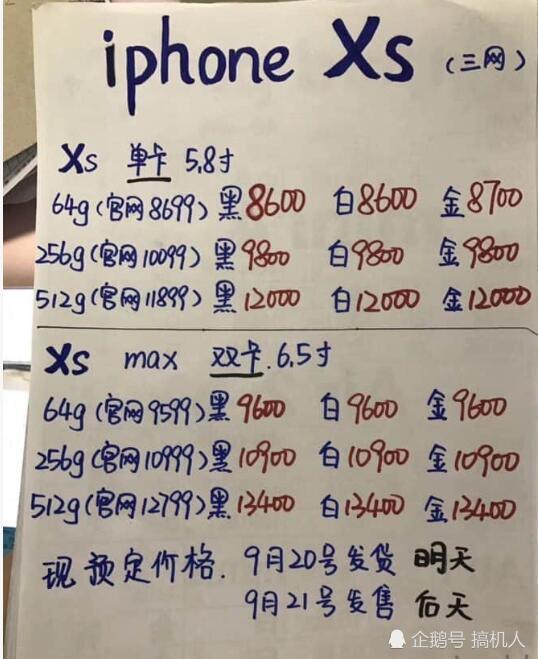 iphone Xs (三网)
Xs 单卡 5.8寸
64g(官网8699)黑8600 白8600 金8700
256g(官网10099)黑9800 白9800 金9800
512g(官网11899)黑12000 白12000 金12000
Xs max 双卡.6.5寸
64g(官网9599)黑9600 白9600 金9600
256g(官网10999)黑10900 白10900 金10900
512g(官网12799)黑13400 白13400 金13400
现预定价格. 9月20号发货 明天
9月21号发售 后天
企鹅号 搞机人